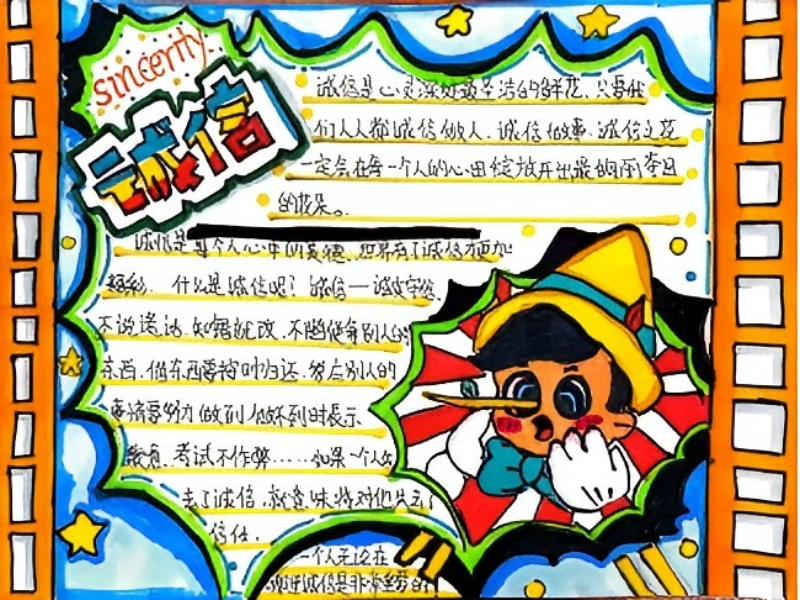 sincerity
诚信
诚信是心灵深处最圣洁的鲜花,只要我
们人人都诚信做人、诚信做事,诚信之花
一定会在每一个人的心田绽放开出最的
的花朵。
诚信是每个人心中的美德,世界有了诚信才更加
精彩。什么是诚信呢?诚信一诚实守信,
不说谎话,知错就改,不随便拿别人的
东西,借东西要按时归还,答应别人的
事情要努力做到,做不到时表示
歉意,考试不作弊……如果一个人失
去了诚信,就意味着对他失去了
信任。
一个人无论在
诚信是非常重要的